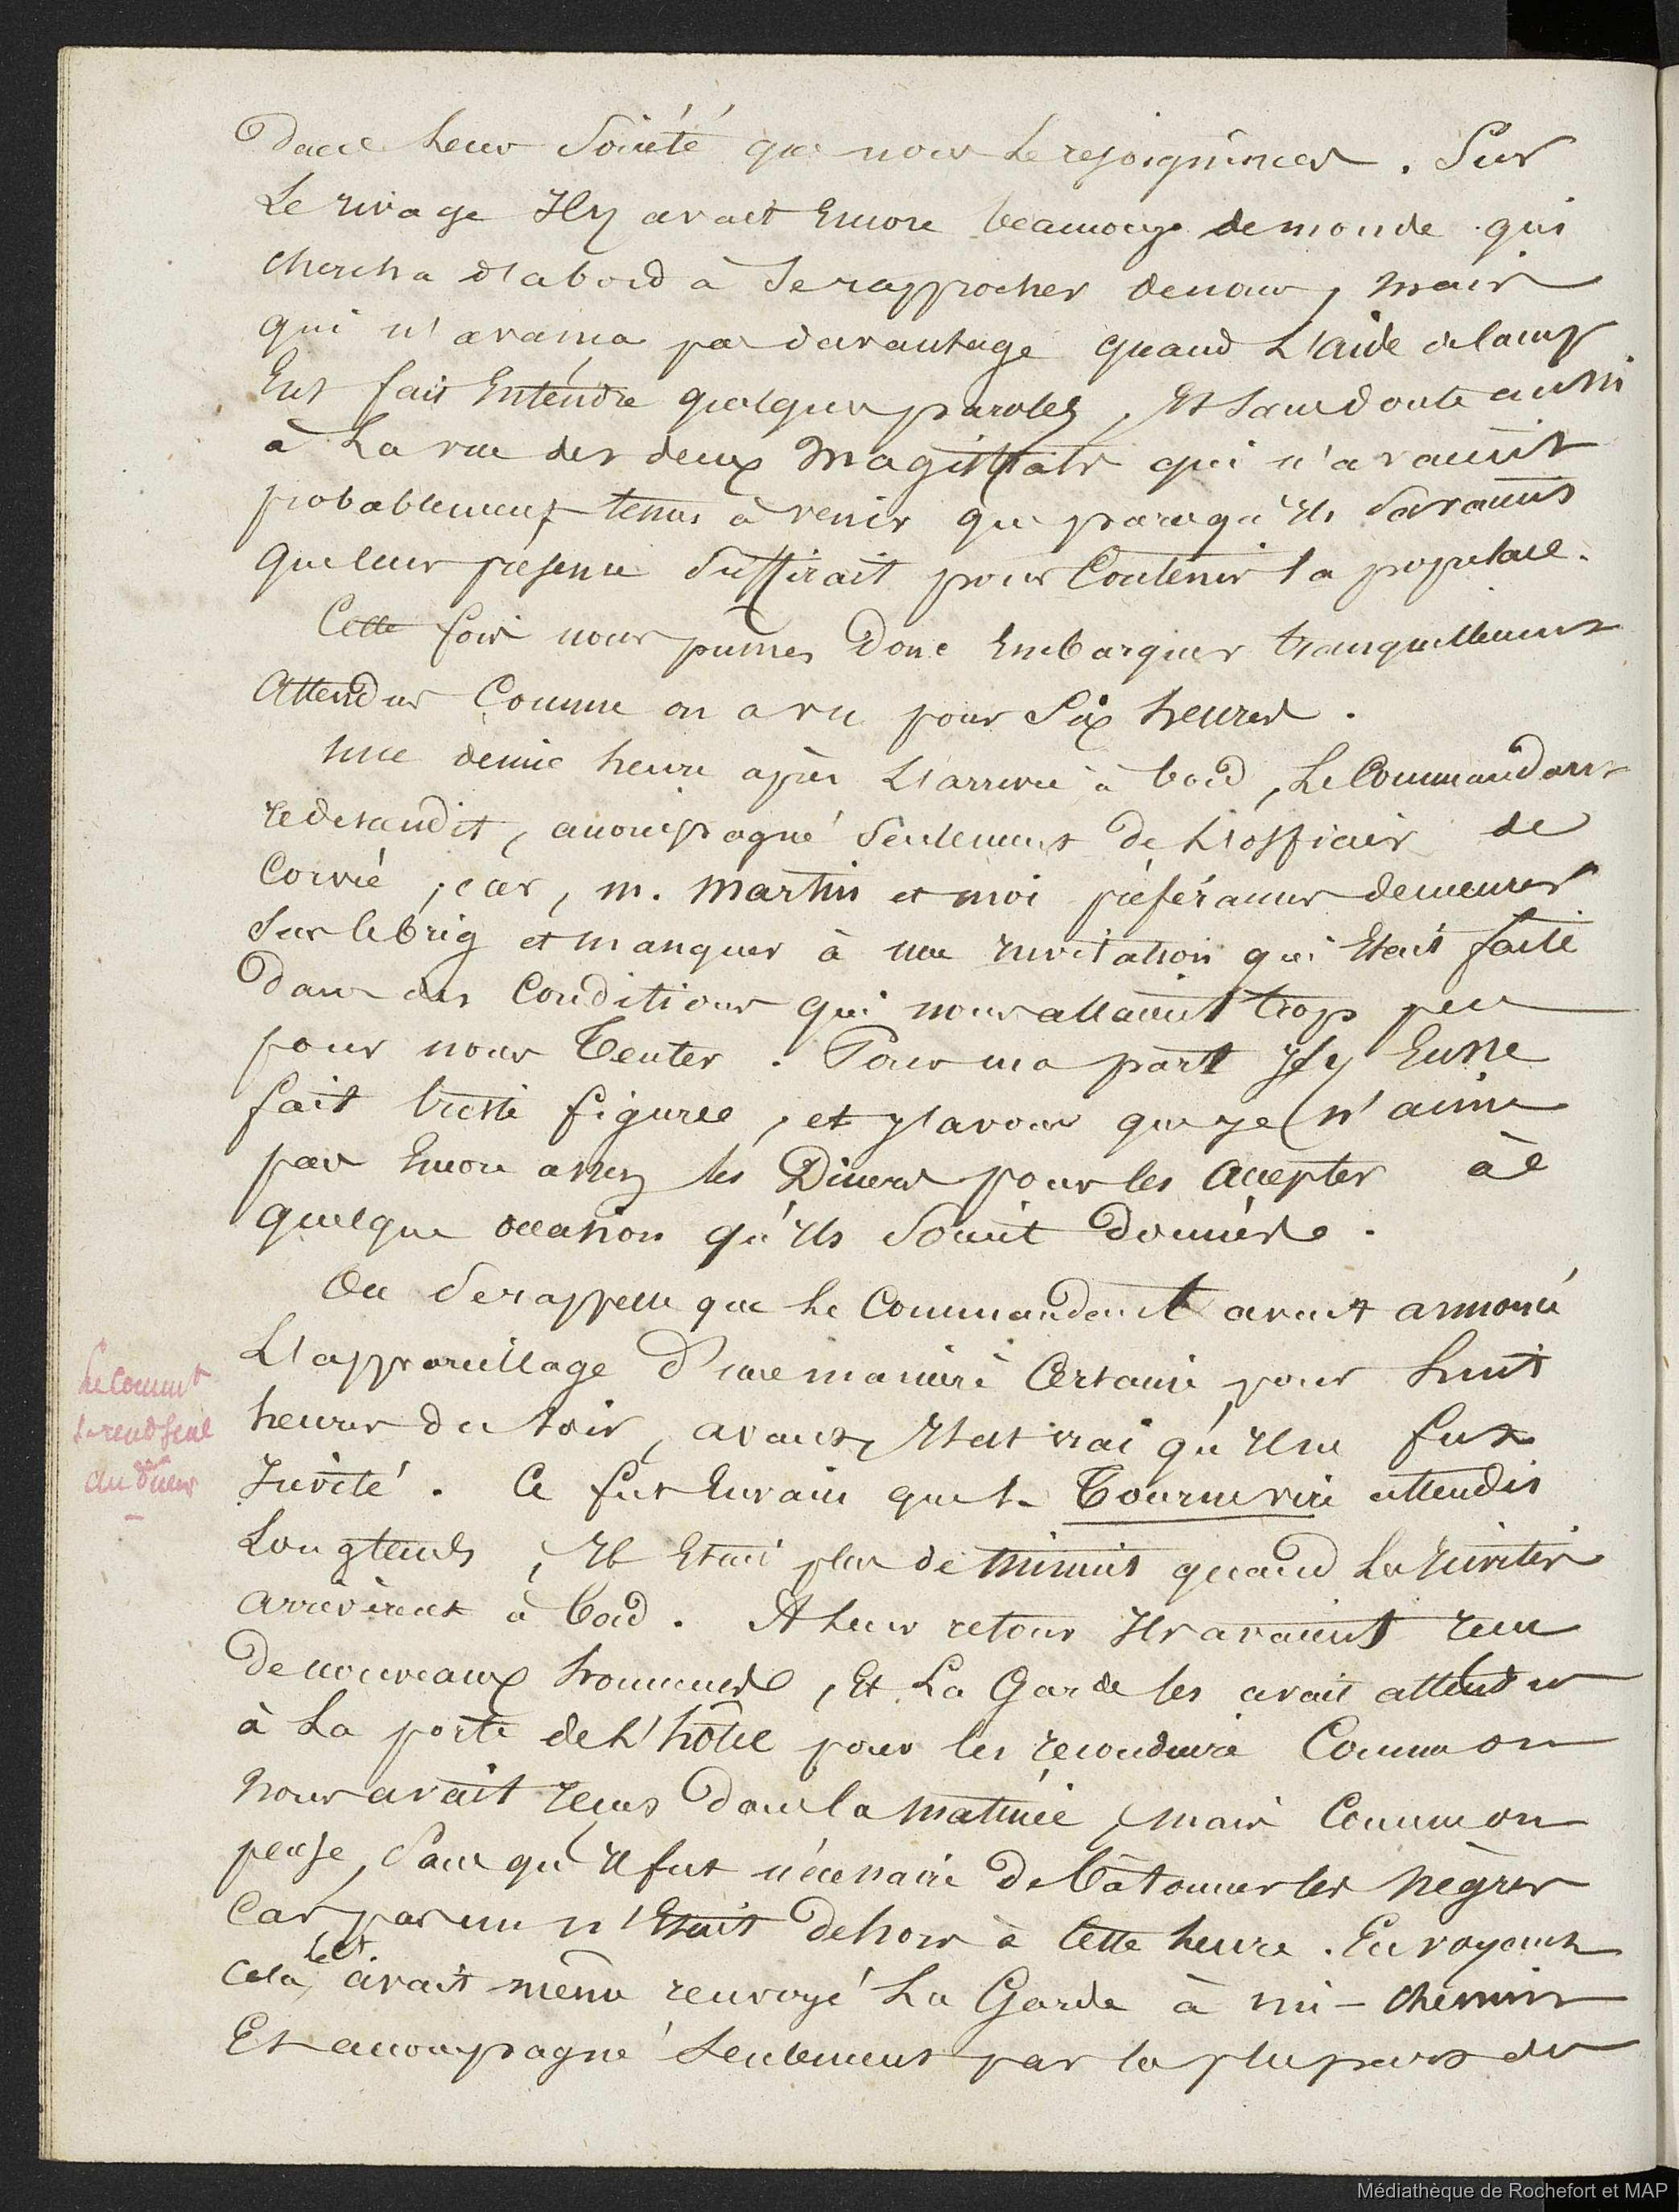 Dans leur Société que nous le rejoignîmes. Sur
Le rivage Il y avait Encore beaucoup de monde qui
chercha d'abord à se rapprocher de nous, mais
qui n'avança pas davantage quand L'aide de camp
Eut fait Entendre quelques paroles, Et sans doute aussi
à La vue des deux magistrats qui n'avaient
probablement tenus à venir que parcequ'ils savaient
que leur présence Suffirait pour Contenir la populace.
Cette fois nous pumes Donc Embarquer tranquillement
Attendus Comme on a vu pour Six heures.
Une demie heure après L'arrivée à bord, Le Commandant
redescendit, accompagné Seulement de L'officier de
Corvée ; car, m. Martin et moi préférames demeurer
Sur le brig et manquer à une Invitation qui Etait faite
Dans des Conditions qui nous allaient trop peu
pour nous Tenter. Pour ma part J'y Eusse
fait triste figure, et j'avoue que je n'aime
pas Encore assez les Diners pour les Accepter à
quelque occasion qu'ils Soient Donnés.
On Se rappelle que Le Commandant avait annoncé
L'appareillage d'une manière Certaine pour huit
heures du soir, avant, Il est vrai qu'Il ne fut
Invité. Ce fut Envain que le Tourneville attendit
Longtemps, Il Etait plus de minuit quand Les Invités
arrivèrent à bord. A Leur retour Ils avaient reçu
De nouveaux honneurs, Et La Garde les avait attendus
à La porte de L'hôtel pour les reconduire Comme on
nous avait reçus Dans la matinée, mais Comme on
pense, Sans qu'Il fut nécessaire De Bâtonner les Nègres
Car pas un n'Etait dehors à Cette heure. En voyant
Cela, le Ct. avait même renvoyé La Garde à mi-chemin
Et accompagné Seulement par la plupart des
Le Commt
Se rend seul
au diner
Médiathèque de Rochefort et MAP